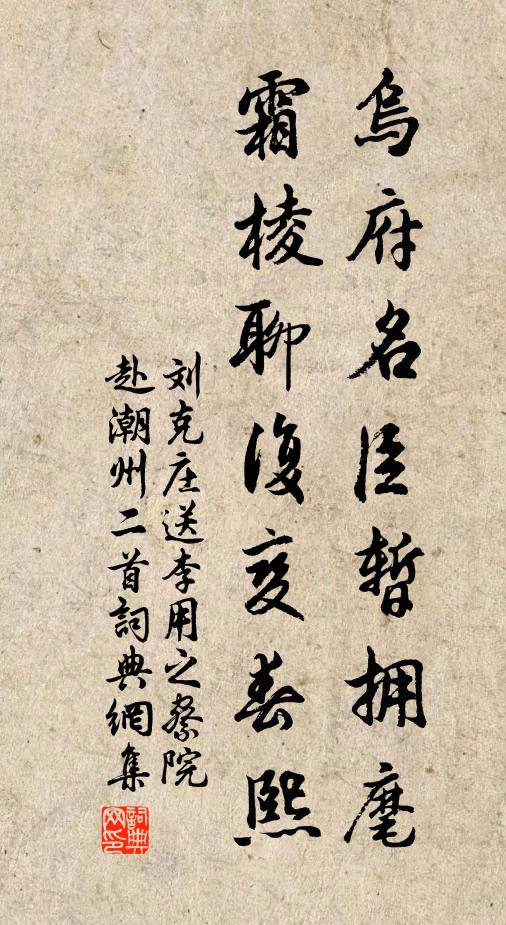 烏府名臣暫拥麾
霜棱聊復变春熙
刘克庄送李用之察院
赴潮州二首詞典網集
詞典
网印